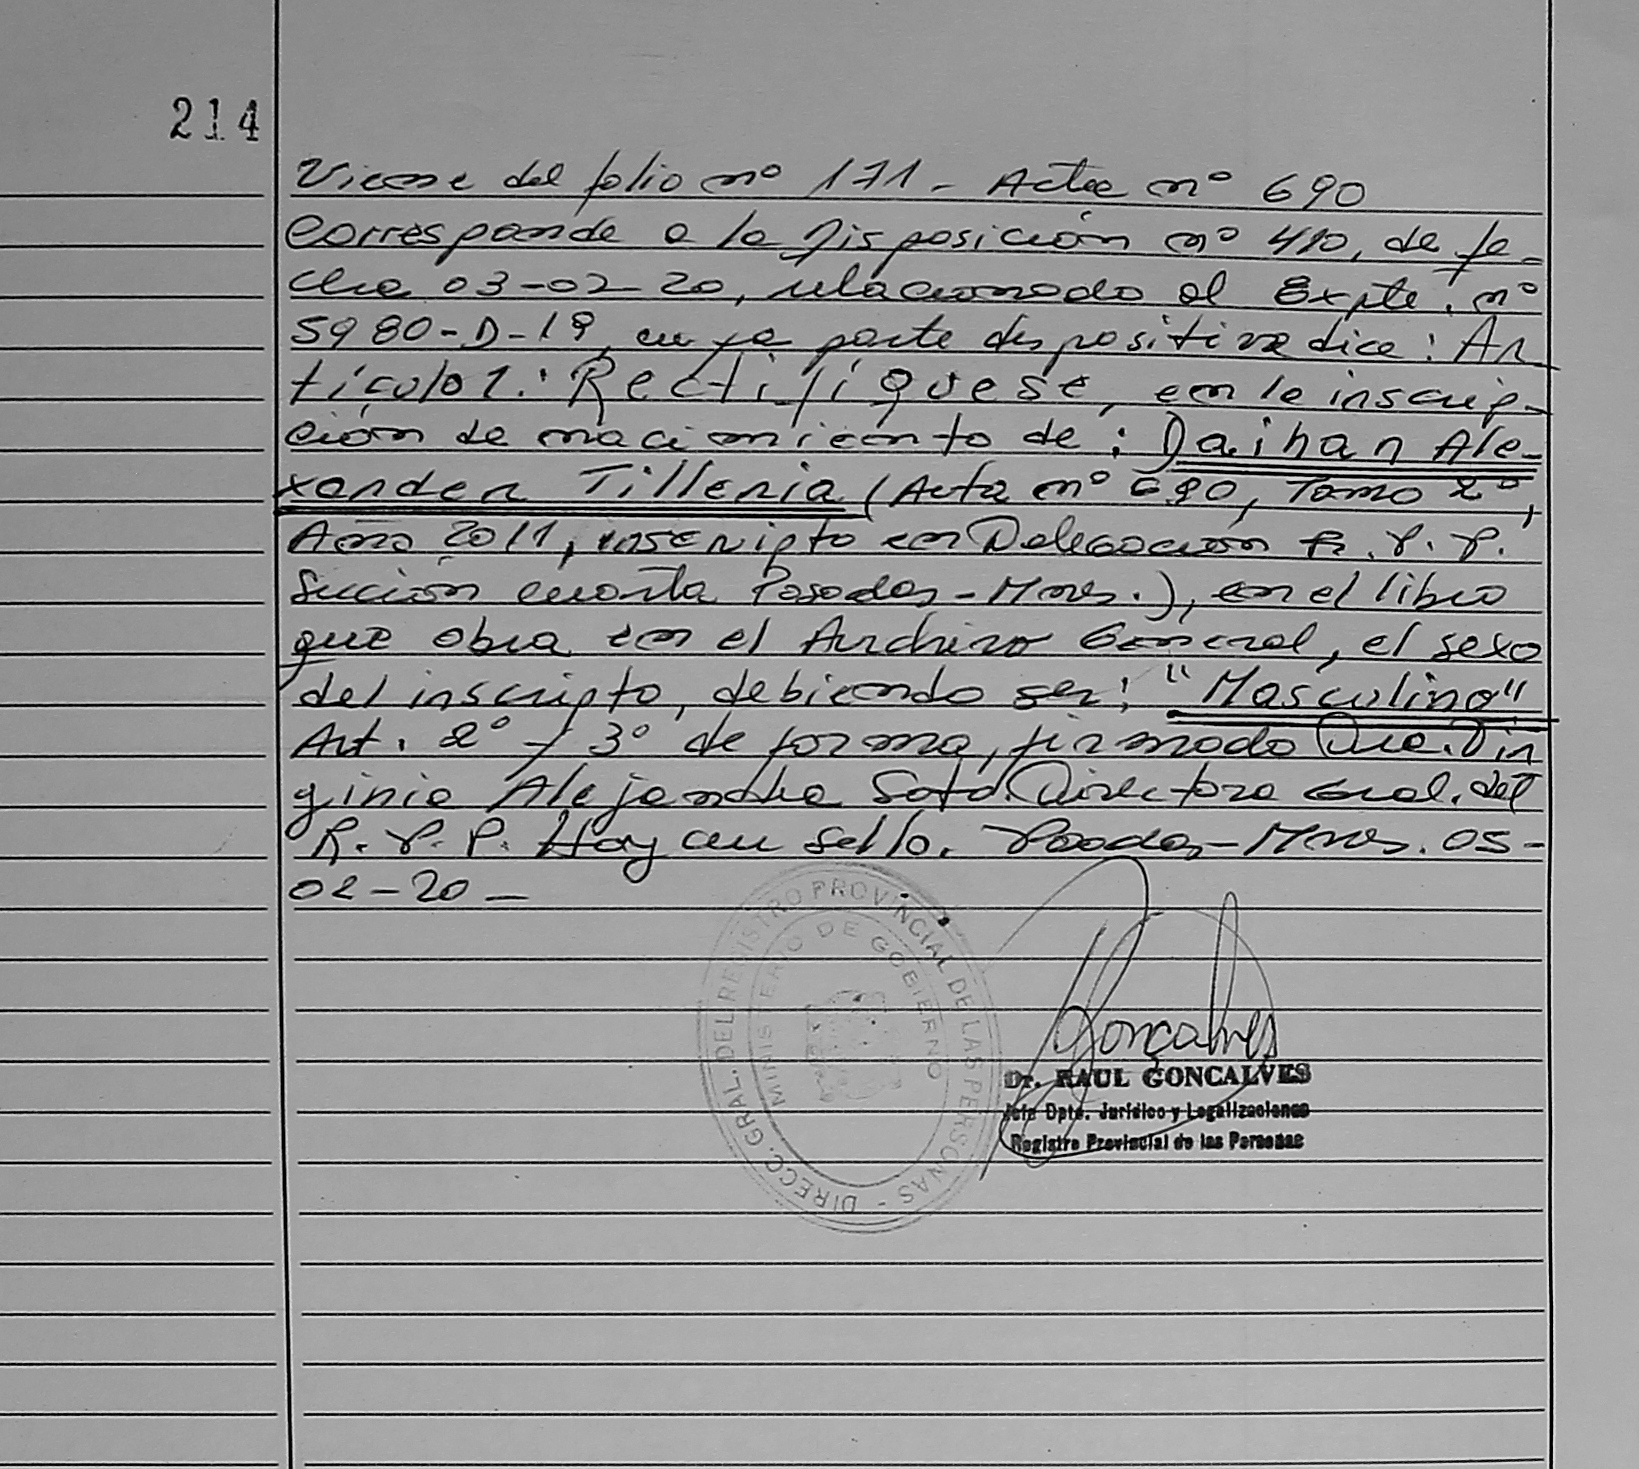 214
Viene del folio nº 171 - Acta nº 690
Corresponde a la Disposición nº 410, de fe-
cha 03-02-20, relacionado al Expte. nº
5980-D-19, cuya parte dispositiva dice: Ar
tículo 1.: Rectifíquese, en la inscrip-
ción de nacimiento de: Daihan Ale-
xander Tilleria (Acta nº 690, Tomo 2º,
Año 2011, inscripto en Delegación R.P.P.
Sección cuarta Posadas-Mnes.), en el libro
que obra en el Archivo General, el sexo
del inscripto, debiendo ser: "Masculino"
Art. 2º y 3º de forma, firmado Dra. Vir
ginia Alejandra Soto. Directora Gral. del
R.P.P. Hay un sello. Posadas-Mnes. 05-
02-20-
DIRECC. GRAL. DEL REGISTRO PROVINCIAL DE LAS PERSONAS -
MINISTERIO DE GOBIERNO
Gonçalves
Dr. RAUL GONCALVES
Jefe Dpto. Jurídico y Legalizaciones
Registro Provincial de las Personas